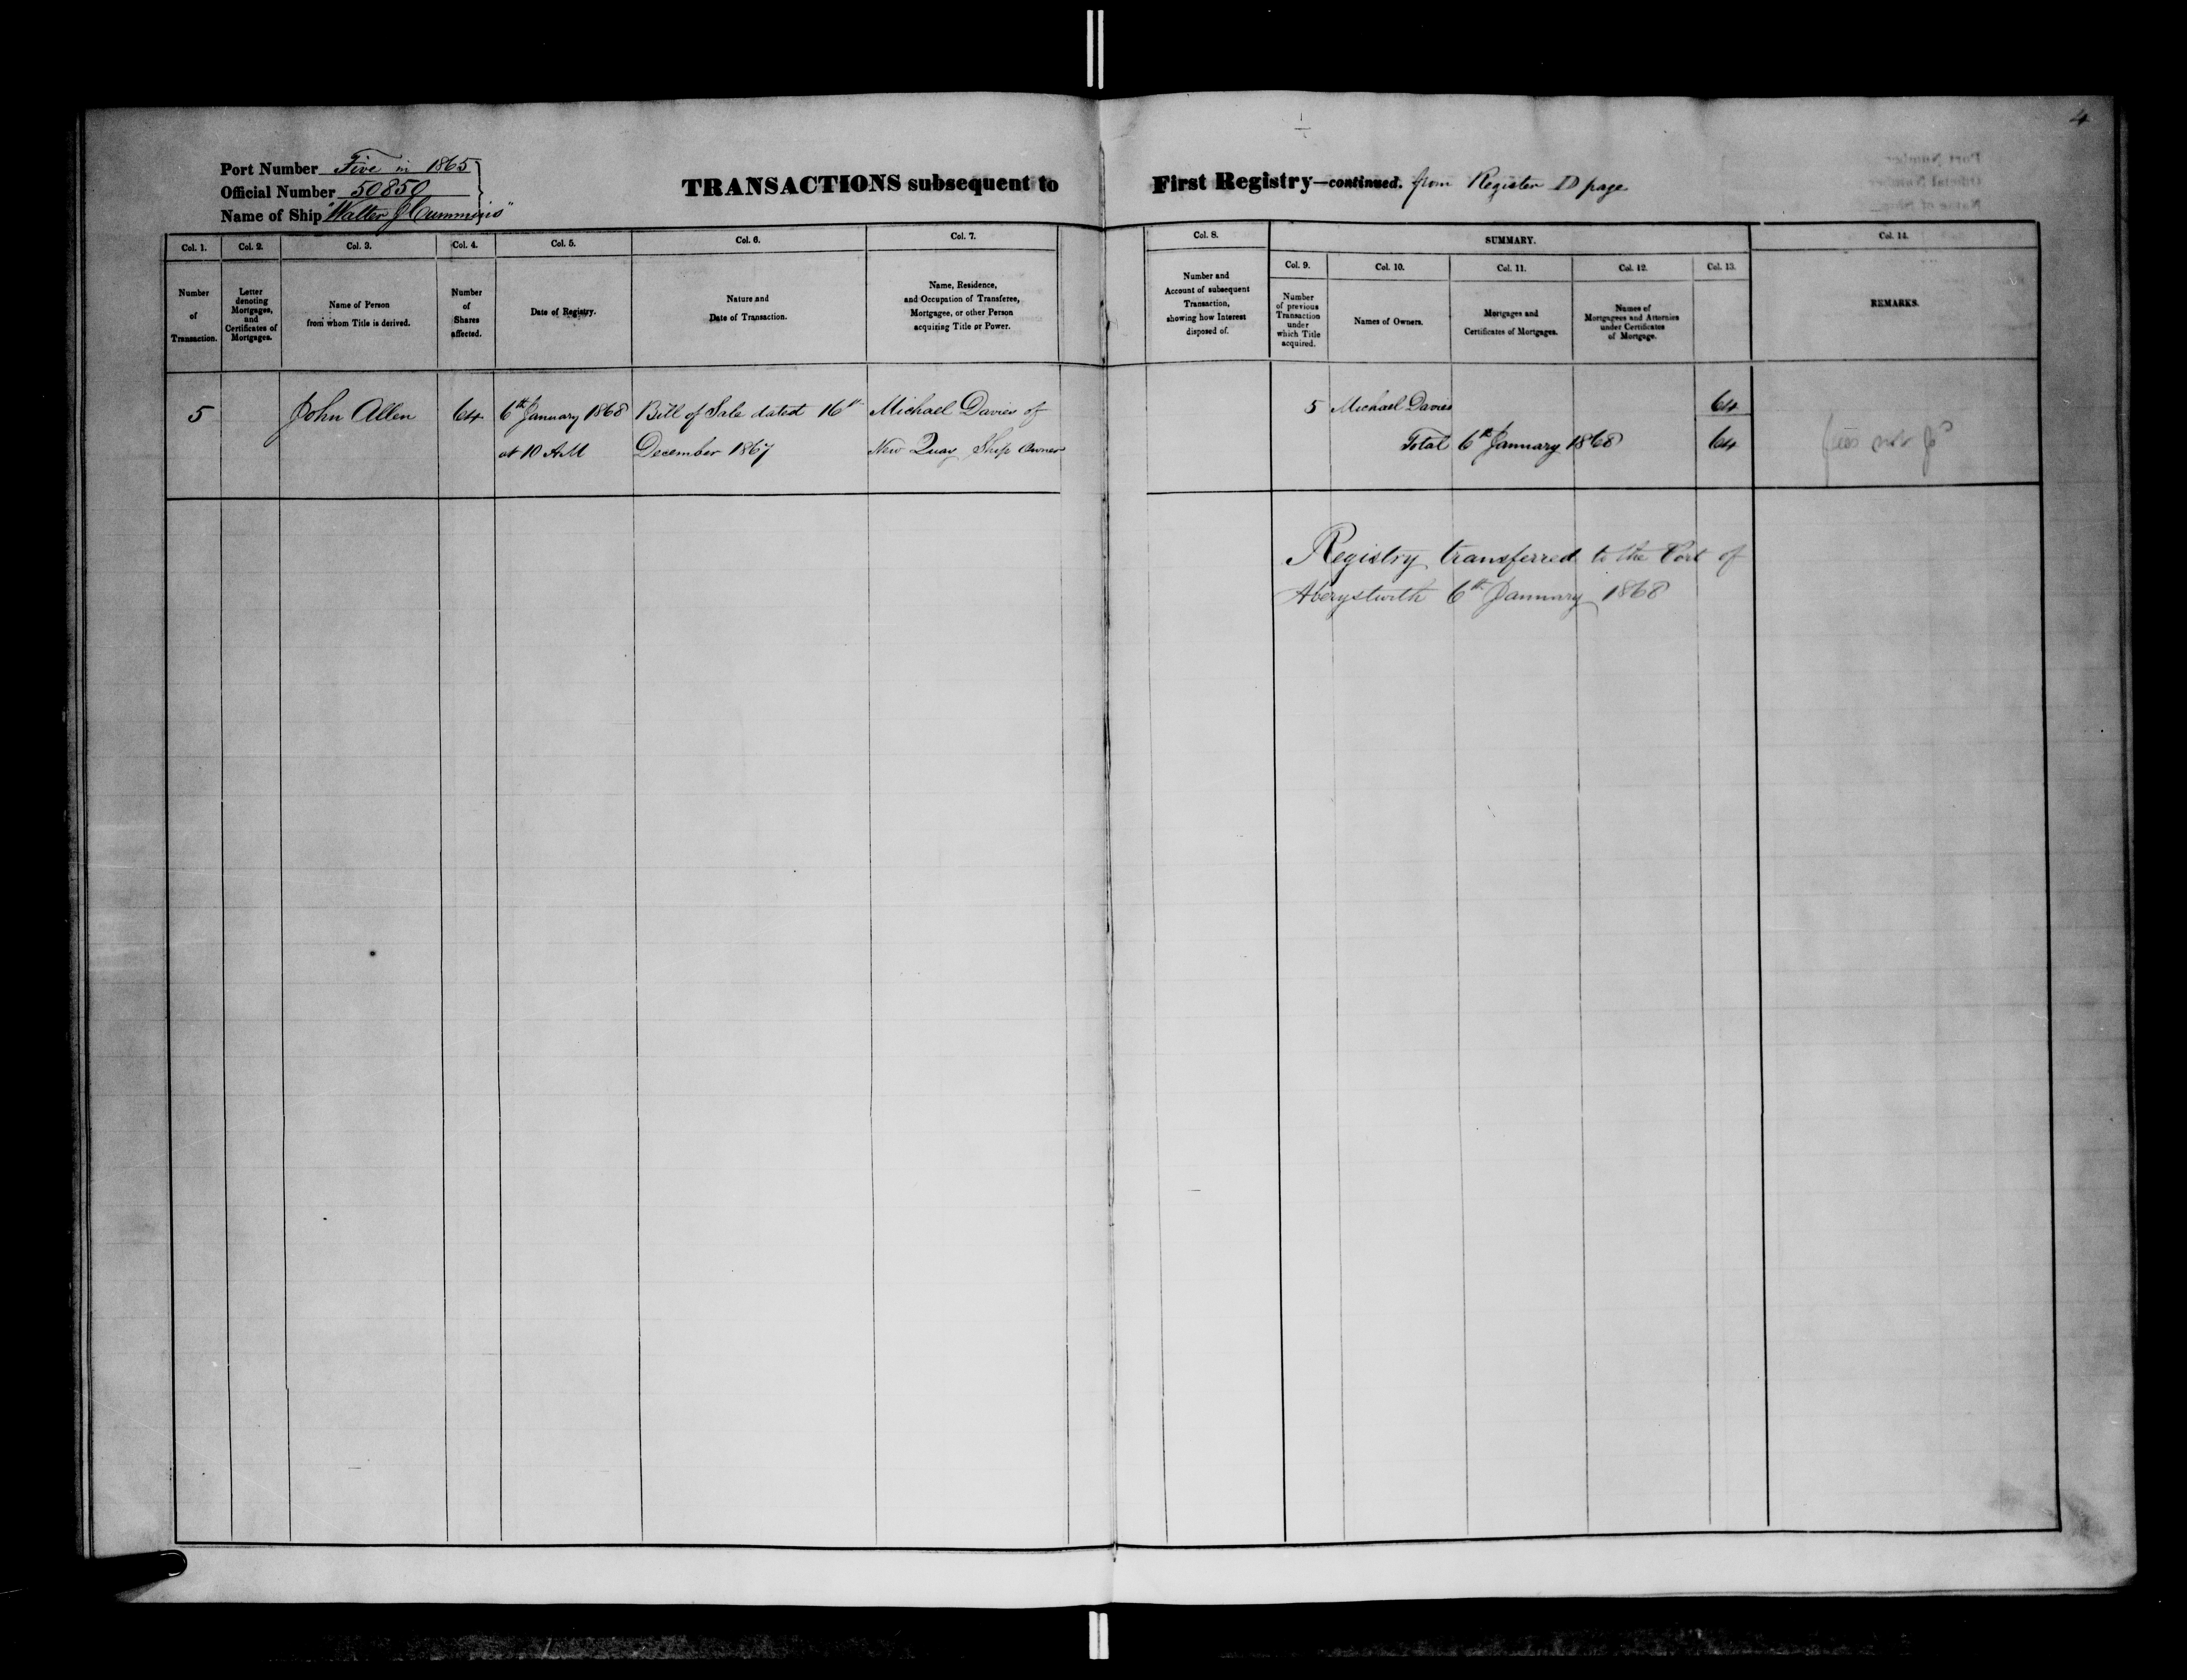 4
Port Number Five in 1865
Official Number 50850
Name of Ship "Walter J Cummins"
TRANSACTIONS subsequent to First Registry—continued. from Register D page
Col. 1. Col. 2. Col. 3. Col. 4. Col. 5. Col. 6. Col. 7. Col. 8. SUMMARY. Col. 14.
Col. 9. Col. 10. Col. 11. Col. 12. Col. 13.
Number
of
Transaction.
Letter
denoting
Mortgages,
and
Certificates of
Mortgages.
Name of Person
from whom Title is derived.
Number
of
Shares
affected.
Date of Registry.
Nature and
Date of Transaction.
Name, Residence,
and Occupation of Transferee,
Mortgagee, or other Person
acquiring Title or Power.
Number and
Account of subsequent
Transaction,
showing how Interest
disposed of.
Number
of previous
Transaction
under
which Title
acquired.
Names of Owners.
Mortgages and
Certificates of Mortgages.
Names of
Mortgagees and Attornies
under Certificates
of Mortgage.
REMARKS.
5 John Allen 64 6th January 1868 Bill of Sale dated 16th Michael Davies of 5 Michael Davies 64
at 10 AM December 1867 New Quay Ship Owner Total 6th January 1868 64
Registry transferred to the Port of
Aberystwith 6th January 1868